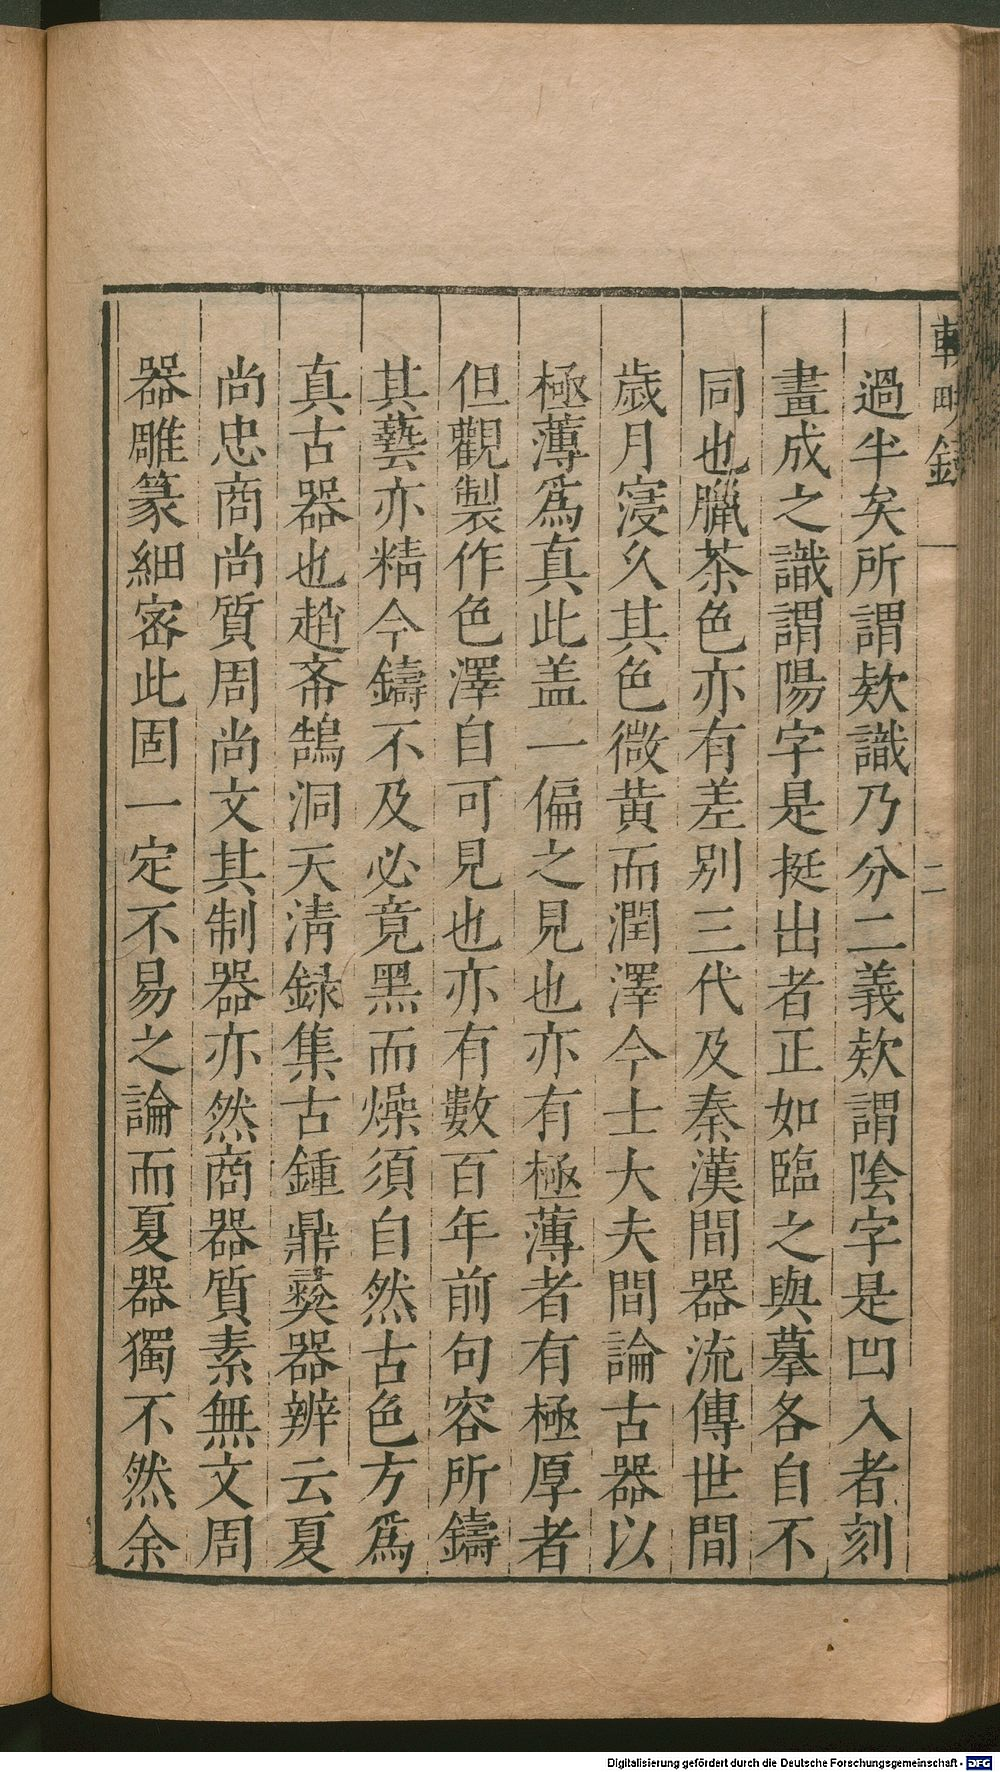 輟畊錄
二
過半矣所謂欵識乃分二義欵謂陰字是凹入者刻
畫成之識謂陽字是挺出者正如臨之與摹各自不
同也臘茶色亦有差别三代及秦漢間器流傳世間
歲月寖久其色微黄而潤澤今士大夫間論古器以
極薄爲真此盖一偏之見也亦有極薄者有極厚者
但觀製作色澤自可見也亦有數百年前句容所鑄
其藝亦精今鑄不及必竟黑而燥須自然古色方爲
真古器也趙希鵠洞天淸録集古鍾鼎彝器辨云夏
尚忠商尚質周尚文其制器亦然商器質素無文周
器雕篆細宻此固一定不易之論而夏器獨不然余
Digitalisierung gefördert durch die Deutsche Forschungsgemeinschaft - DFG